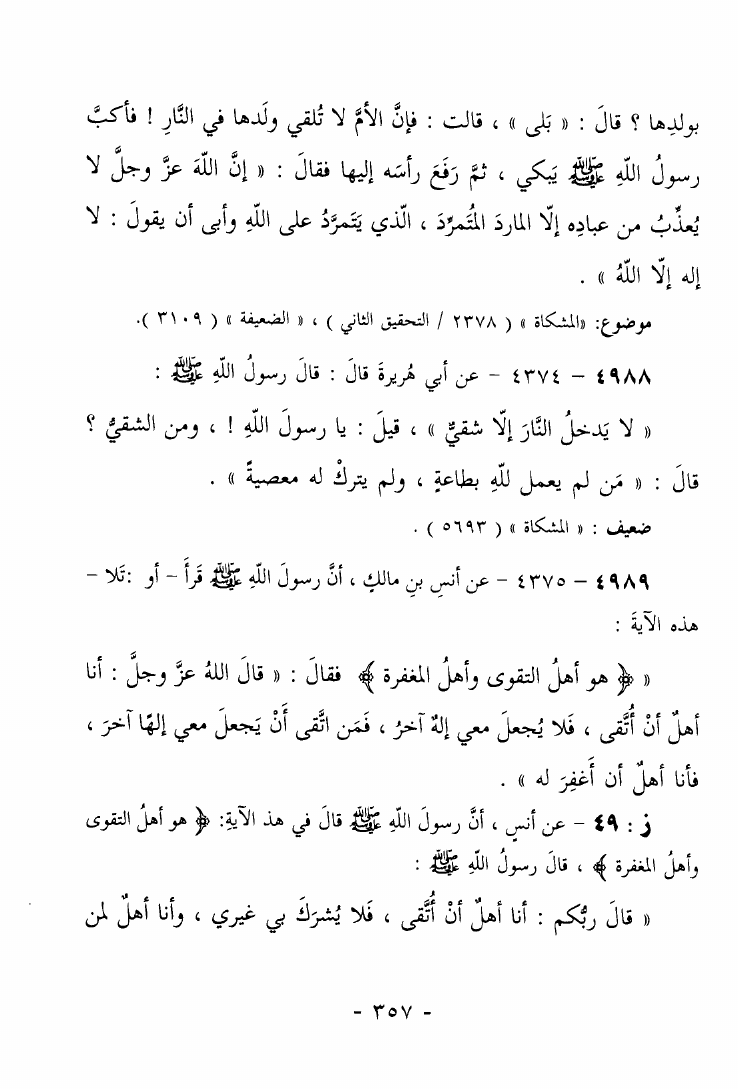 بولدِها ؟ قالَ : « بَلى » ، قالت : فإنَّ الأمَّ لا تُلقي ولَدها في النَّارِ ! فأكبَّ
رسولُ اللّهِ ﷺ يَبكي ، ثمَّ رَفَعَ رأسَه إليها فقالَ : « إنَّ اللّهَ عزَّ وجلَّ لا
يُعذِّبُ من عبادِه إلّا الماردَ المُتَمرِّدَ ، الّذي يَتَمرَّدُ على اللّهِ وأبى أن يقولَ : لا
إله إلّا اللّهُ » .
موضوع: «المشكاة » ( ٢٣٧٨ / التحقيق الثاني ) ، « الضعيفة » ( ٣١٠٩ ).
٤٩٨٨ – ٤٣٧٤ – عن أبي هُريرةَ قالَ : قالَ رسولُ اللّهِ ﷺ :
« لا يَدخلُ النَّارَ إلّا شقيٌّ » ، قيلَ : يا رسولَ اللّهِ ! ، ومن الشقيُّ ؟
قالَ : « مَن لم يعمل للّهِ بطاعةٍ ، ولم يتركْ له معصيةً » .
ضعيف : « المشكاة » ( ٥٦٩٣ ) .
٤٩٨٩ – ٤٣٧٥ – عن أنسِ بنِ مالكٍ ، أنَّ رسولَ اللّهِ ﷺ قَرأَ – أو :تَلا –
هذه الآيةَ :
« ﴿ هو أهلُ التقوى وأهلُ المغفرة ﴾ فقالَ : « قالَ اللهُ عزَّ وجلَّ : أنا
أهلٌ أنْ أُتَّقى ، فَلا يُجعلَ معي إلهٌ آخرُ ، فَمَن اتَّقى أَنْ يَجعلَ معي إلهًا آخرَ ،
فأنا أهلٌ أن أَغفِرَ له » .
ز : ٤٩ – عن أنسٍ ، أنَّ رسولَ اللّهِ ﷺ قالَ في هذ الآيةِ: ﴿ هو أهلُ التقوى
وأهلُ المغفرة ﴾ ، قالَ رسولُ اللّهِ ﷺ :
« قالَ ربُّكم : أنا أهلٌ أنْ أُتَّقى ، فَلا يُشرَكَ بي غيري ، وأنا أهلٌ لمن
- ٣٥٧ -